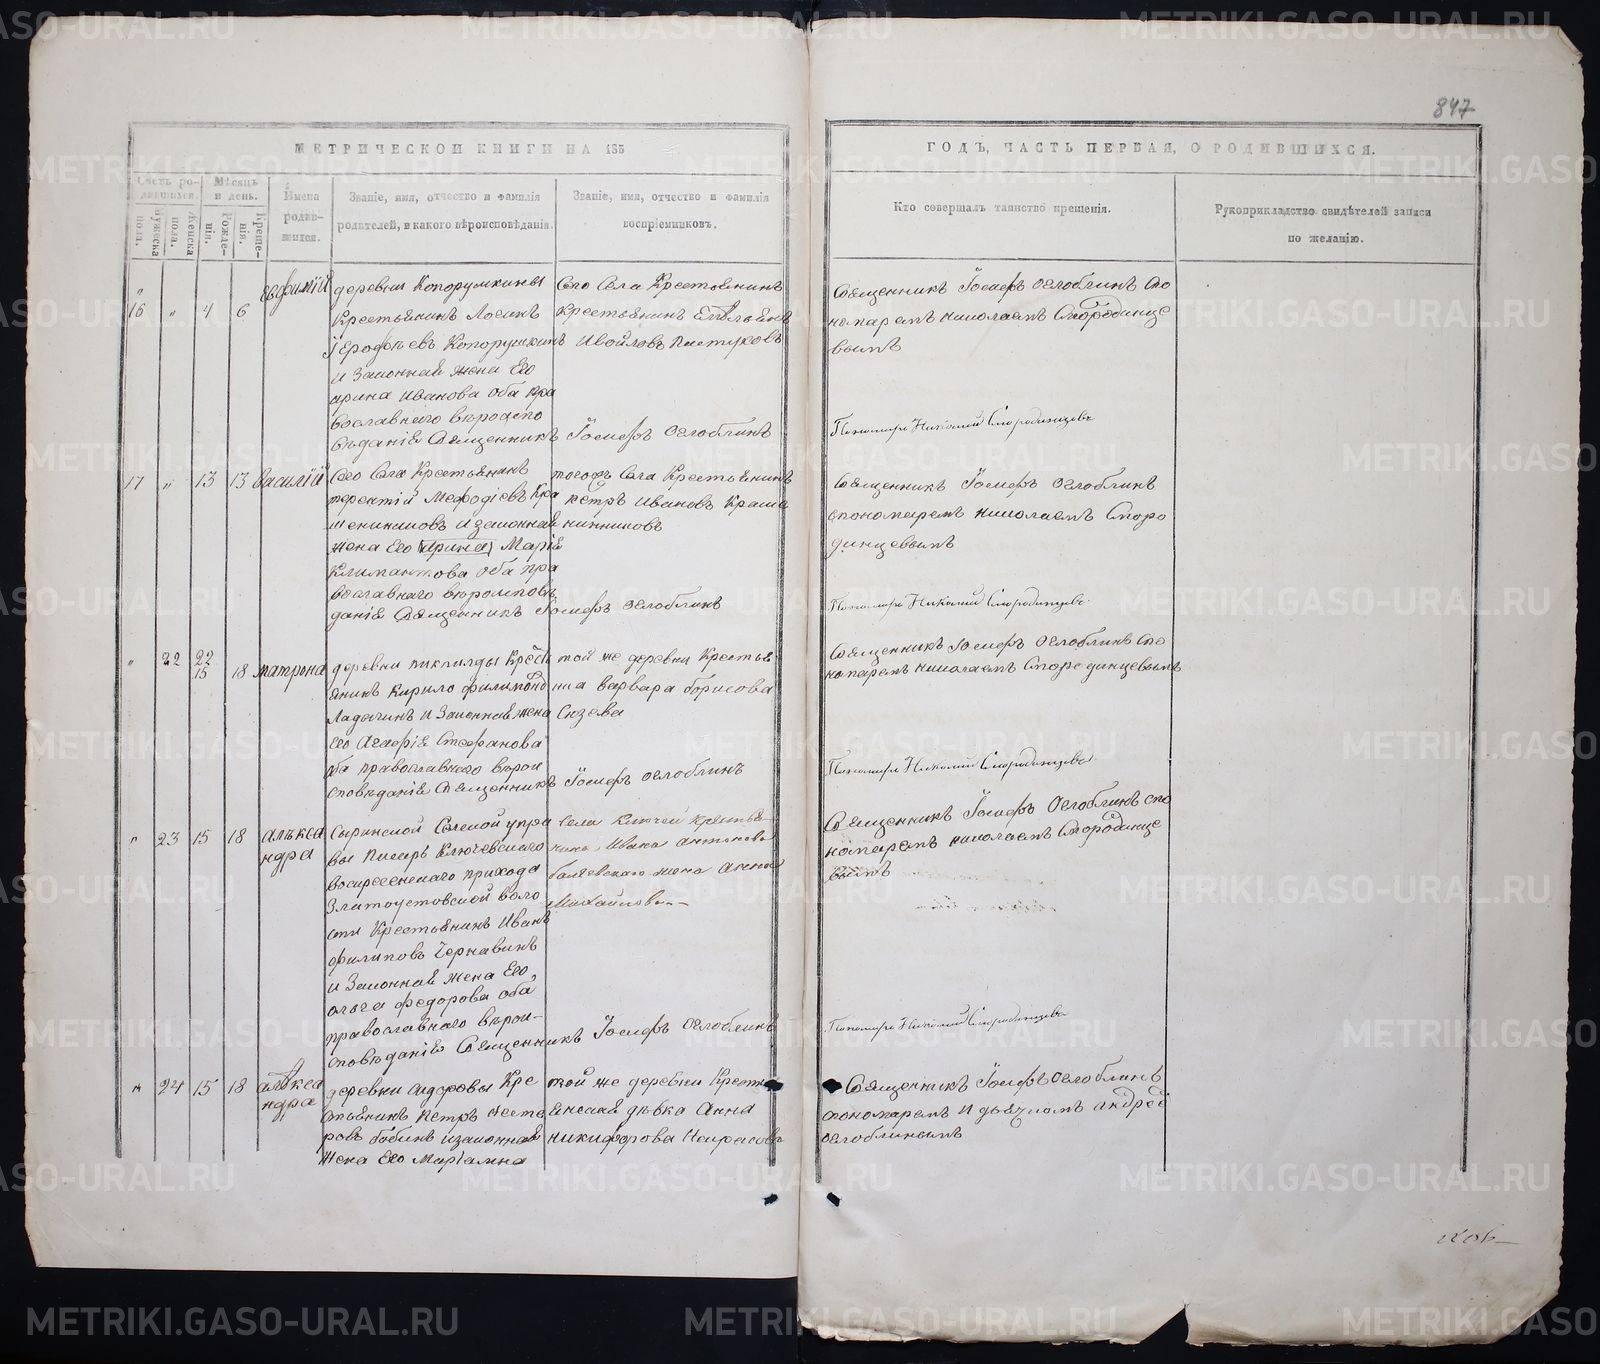 847
МЕТРИЧЕСКОЙ КНИГИ НА 185
ГОДЪ, ЧАСТЬ ПЕРВАЯ, О РОДИВШИХСЯ.
Счетъ ро-
дившихся.
Мѣсяцъ
и день.
Имена
родив-
шихся.
Званіе, имя, отчество и фамилія
родителей, и какого вѣроисповѣданія.
Званіе, имя, отчество и фамилія
воспріемниковъ.
Кто совершалъ таинство крещенія.
Рукоприкладство свидѣтелей записи
по желанію.
Мужеска
пола.
Женска
пола.
Рожде-
нія.
Креще-
нія.
16 „ 4 6 Евфимій
деревни Копорушкины
Крестьянинъ
Копорушкинъ
и Законная жена Его
арина Иванова оба пра
вославнаго вѣроиспо
вѣданія Священникъ Іосифъ Оглоблинъ
Сего Села Крестьянинъ
Крестьянинъ Емѣльянъ
Пастуховъ
Священникъ Іосифъ Оглоблинъ Спо
номаремъ николаемъ Смородинце
вымъ
Пономарь Николай Смородинцевъ
17 „ 13 13 Василій
Сего Села Крестьянинъ
терентій Мефодіевъ Кра
шениниковъ и законная
жена Его (Ирина) Марія
Климантова оба пра
вославнаго вѣроисповѣ
данія Священникъ Іосифъ Оглоблинъ
тогожъ Села Крестьянинъ
петръ Ивановъ Краше
нинниковъ
Священникъ Іосифъ Оглоблинъ
спономаремъ николаемъ Сморо
динцевымъ
Пономарь Николай Смородинцевъ
„ 22 22
15 18 матрона
деревни Кресть
янинъ Кирило филимоно
и Законная жена
Его Агафія Стефанова
оба православнаго вѣрои
сповѣданія Священникъ Іосифъ Оглоблинъ
той же деревни Крестья
варвара борисова
Сюзева
Священникъ Іосифъ Оглоблинъ Спо
номаремъ николаемъ Смородинцевымъ
Пономарь Николай Смородинцевъ
„ 23 15 18 алѣкса
ндра
Сыринской Селской упра
вы Писарь Ключевскаго
воскресенскаго прихода
Златоустовской воло
сти Крестьянинъ Иванъ
филиповъ Чернавинъ
и Законная жена Его,
ольга федорова оба
православнаго вѣрои-
сповѣданія Священникъ Іосифъ Оглоблинъ
Села Ключей Крестья-
нина Ивана антонова
жена анна
Михайлова
Священникъ Іосифъ Оглоблинъ спо
номаремъ николаемъ Смородинце
вымъ
Пономарь Николай Смородинцевъ
„ 24 15 18 алѣкса
ндра
деревни сидоровы Кре
стьянинъ петръ несте
ровъ бобинъ и законная
жена Его Маріамна
той же деревни Крестья
янская дѣвка Анна
никифорова Некрасова
Священникъ Іосифъ Оглоблинъ
спономаремъ и дьячкомъ андреѣ
оглоблинымъ
METRIKI.GASO-URAL.RU